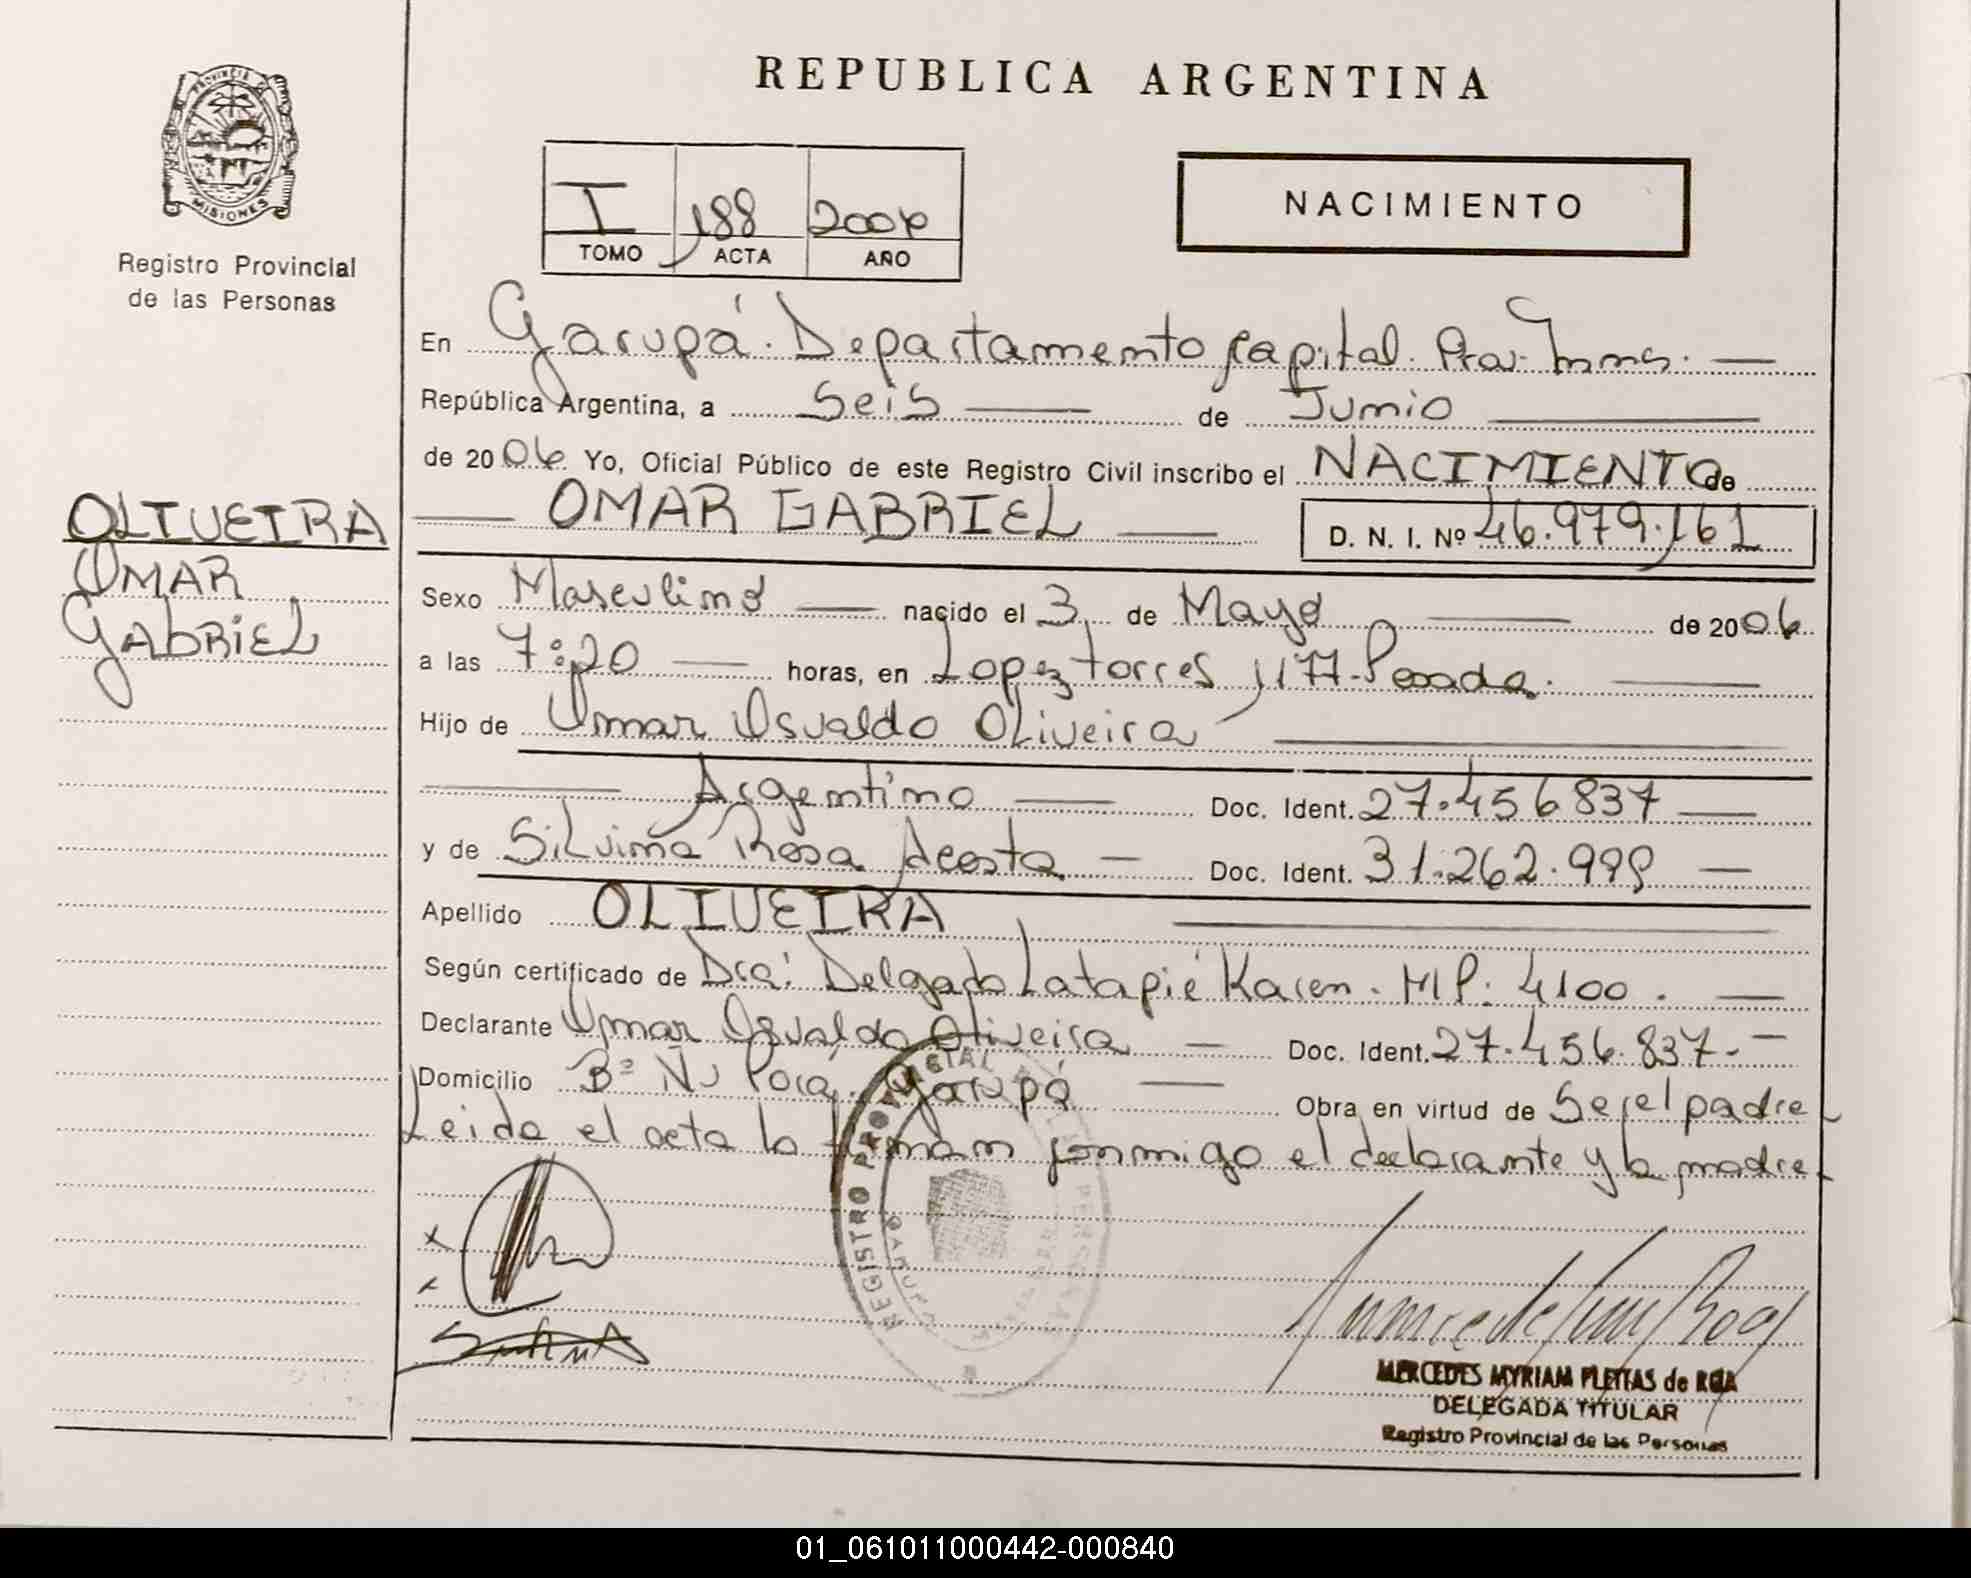 REPUBLICA ARGENTINA
PROVINCIA DE MISIONES
Registro Provincial
de las Personas
I 188 2006
TOMO ACTA AÑO
NACIMIENTO
OLIVEIRA
OMAR
GABRIEL
En Garupá. Departamento Capital. Prov. Mnes.
República Argentina, a Seis de Junio
de 2006 Yo, Oficial Público de este Registro Civil inscribo el NACIMIENTO de
OMAR GABRIEL D. N. I. Nº 46.979.161
Sexo Masculino nacido el 3 de Mayo de 2006
a las 7:20 horas, en Lopez torres y 177- Posadas.
Hijo de Omar Osvaldo Oliveira
Argentino Doc. Ident. 27.456837
y de Silvina Rosa Acosta Doc. Ident. 31.262.999
Apellido OLIVEIRA
Según certificado de Dra: Delgado Latapié Karen. MP. 4100.
Declarante Omar Osvaldo Oliveira Doc. Ident. 27.456.837.-
Domicilio Bº Ñu Porá. Garupá Obra en virtud de Ser el padre
Leida el acta la firman conmigo el declarante y la madre.
REGISTRO PROVINCIAL
MERCEDES MYRIAM PLEITAS de ROA
DELEGADA TITULAR
Registro Provincial de las Personas
01_061011000442-000840